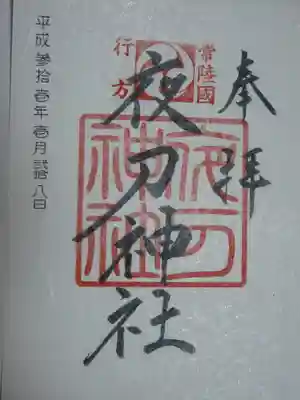 奉拝
常陸國
行方
夜刀神社
夜刀神社
平成参拾壱年壱月弐拾八日